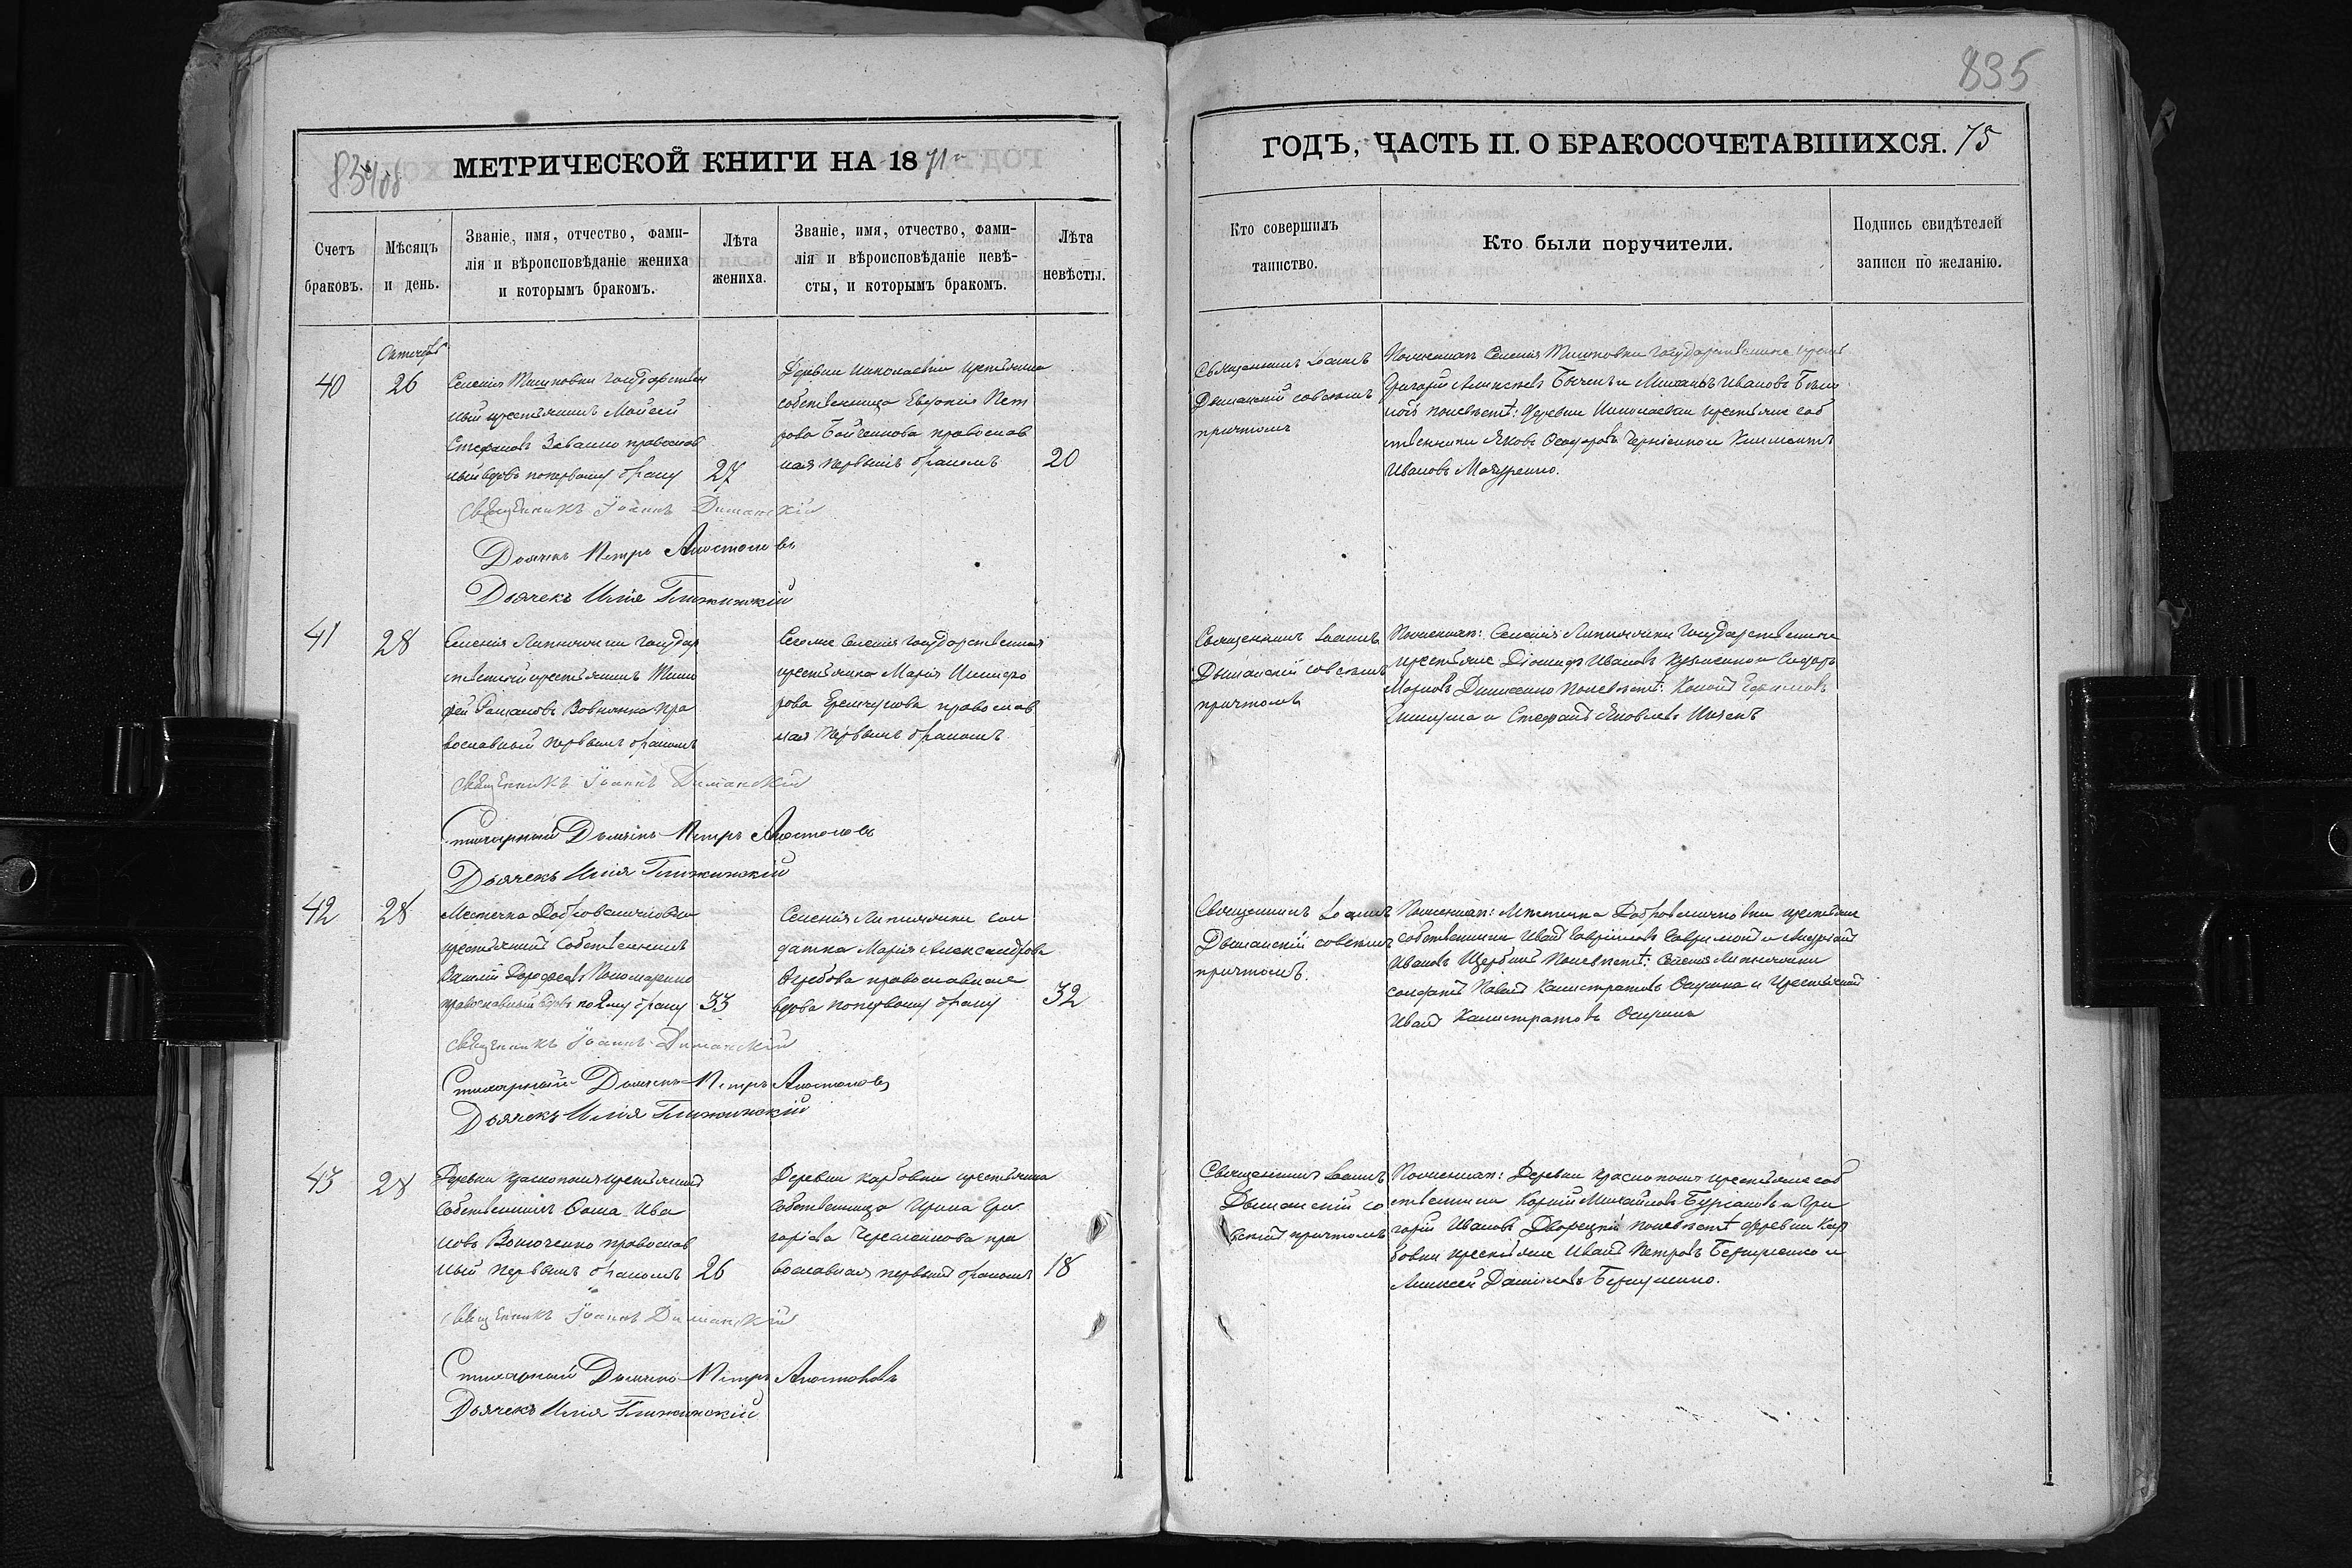 835
МЕТРИЧЕСКОЙ КНИГИ НА 1871
ГОДЪ, ЧАСТЬ II. О БРАКОСОЧЕТАВШИХСЯ. 75
Счетъ
браковъ.
Мѣсяцъ
и день.
Званіе, имя, отчество, фами-
лія и вѣроисповѣданіе жениха
и которымъ бракомъ.
Лѣта
жениха.
Званіе, имя, отчество, фами-
лія и вѣроисповѣданіе невѣ-
сты, и которымъ бракомъ.
Лѣта
невѣсты.
Кто совершилъ
таинство.
Кто были поручители.
Подпись свидѣтелей
записи по желанію.
40
Октября
26
Селенія государствен
ный крестьянинъ Мойсей
Стефановъ православ
ный вдовъ попервому браку
27
Деревни Николаевки крестьянка
собственница Евдокія Пет
рова Бойченкова православ
ная первымъ бракомъ
20
Священникъ Іоаннъ
Дыманскій совсемъ
причтомъ
Григорій Алексѣевъ и Михаилъ Ивановъ
поневѣст: деревни Николаевки крестьяне соб
ственники Яковъ Феодоровъ и Климентъ
Ивановъ Мазуренко.
Священникъ Іоаннъ Диманскій
Дьячекъ Петръ Апостоловъ
Дьячекъ Илія Глижинскій
41
28
Селенія Липняжки государ
ственный крестьянинъ Тимо
фей Романовъ Вовнянко пра
вославный первымъ бракомъ
Сегоже селенія государственная
крестьянка Марія Никифо
рова православ
ная первымъ бракомъ
Священникъ Іоаннъ
Дыманскій совсемъ
причтомъ
Пожениху: Селенія Липняжки государственные
крестьяне Діомидъ Ивановъ и Сидоръ
Марковъ Поневѣст: Кононъ Ефимовъ
и Стефанъ Яковлевъ
Священникъ Іоаннъ Диманскій
Стихарный Дьячекъ Петръ Апостоловъ
Дьячекъ Илія Глижинскій
42
28
Местечка Добровеличковки
крестьянинъ Собственникъ
Василій Дорофеевъ Пономаренко
православный вдовъ по 2му браку
33
Селенія Липняжки сол
датка Марія Александрова
православная
вдова попервому браку
32
Священникъ Іоаннъ
Дыманскій совсемъ
причтомъ.
Пожениху: Мѣстечка Добровеличковки крестьяне
собственники Иванъ Гавриловъ и
Ивановъ Щербина Поневѣст: Селенія Липняжки
солдатъ Павелъ Калистратовъ и Крестьянинъ
Иванъ Калистратовъ
Священникъ Іоаннъ Диманскій
Стихарный Дьячекъ Петръ Апостоловъ
Дьячекъ Илія Глижинскій
43
28
Деревни Краснополя крестьянинъ
собственникъ Фома Ива
новъ православ
ный первымъ бракомъ
26
Деревни Карбовки крестьянка
собственница Ирина Гри
горіева пра
вославная первымъ бракомъ
18
Священникъ Іоаннъ
Дыманскій со
всемъ причтомъ
Пожениху: Деревни Краснополя крестьяне соб
ственники Корній Михайловъ и Гри
горій Ивановъ Дворецкій поневѣст деревни Кар
бовки крестьяне Иванъ Петровъ и
Алексей Даниловъ
Священникъ Іоаннъ Диманскій
Стихарный Дьячекъ Петръ Апостоловъ
Дьячекъ Илія Глижинскій